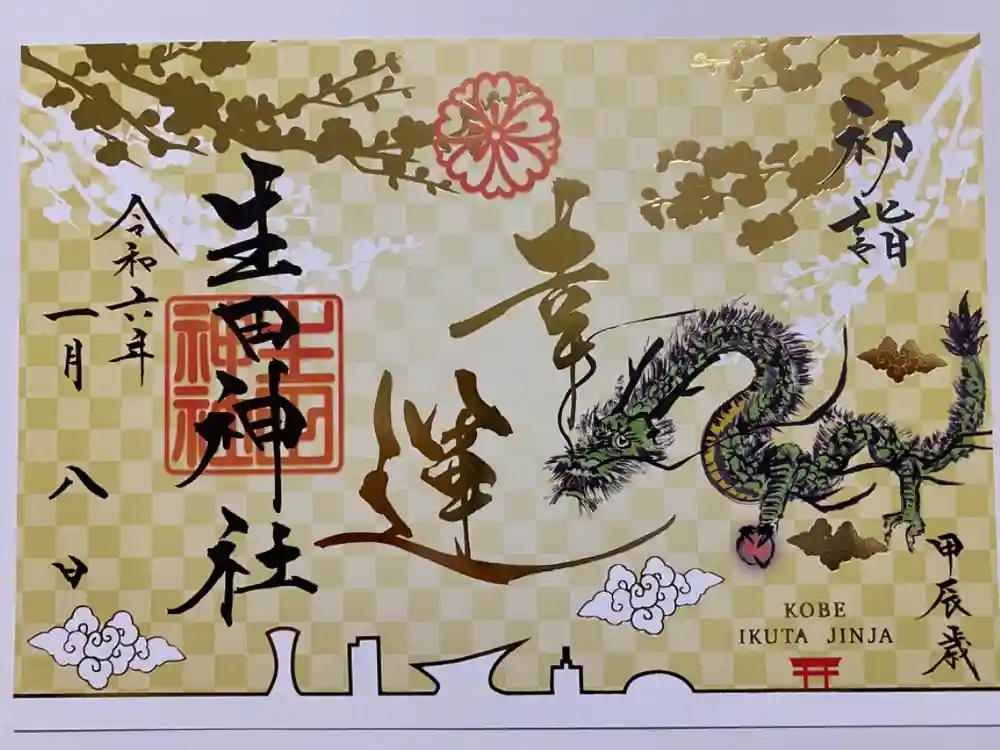 初詣
幸運
生田神社
令和六年
一月八日
生田神社
KOBE
IKUTA JINJA
甲辰歳